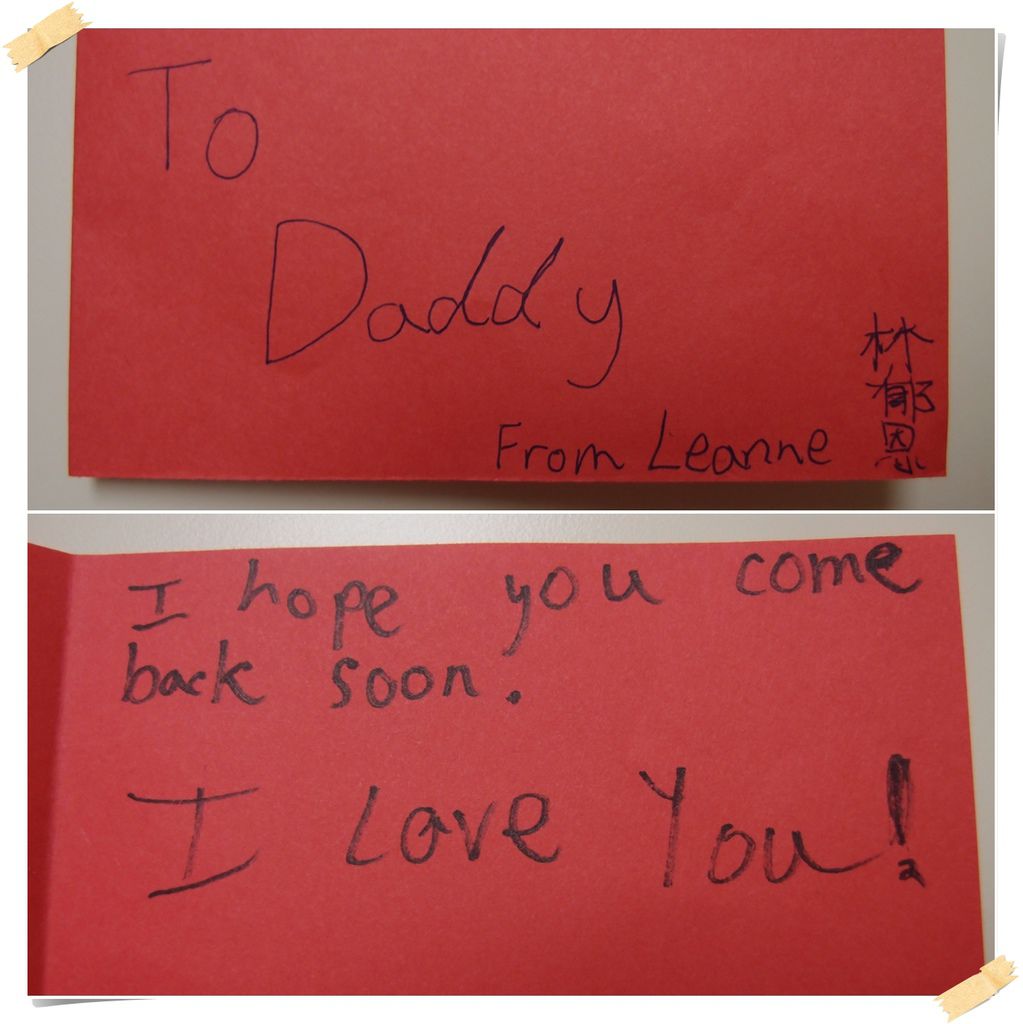 To
Daddy
From Leanne
林
郁
恩
I hope you come
back soon.
I Love You!